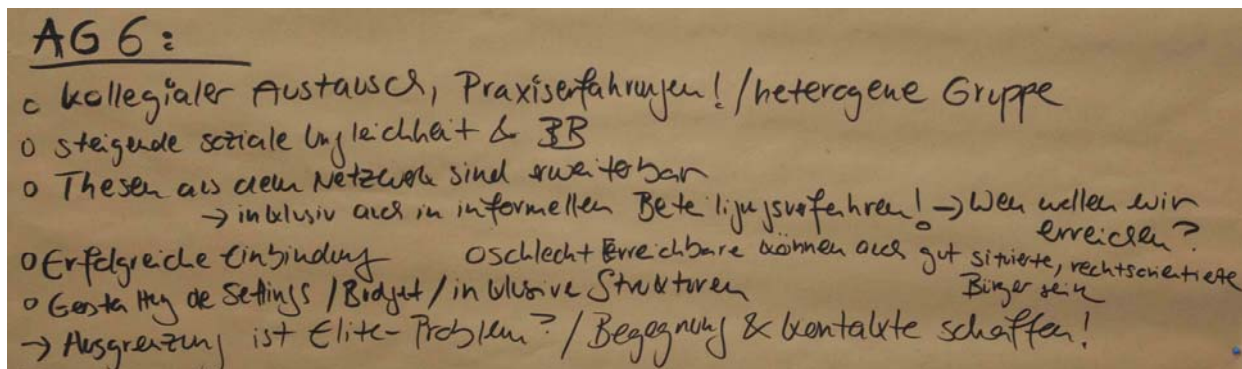 AG 6:
o kollegialer Austausch, Praxiserfahrungen! / heterogene Gruppe
o steigende soziale Ungleichheit & BB
o Thesen aus dem Netzwerk sind erweiterbar
→ inklusiv auch in informellen Beteiligungsverfahren! → Wen wollen wir
erreichen?
o Erfolgreiche Einbindung o schlecht Erreichbare können auch gut situierte, rechtsorientierte
Bürger sein
o Gestaltung de Settings / Budget / inklusive Strukturen
→ Ausgrenzung ist Elite-Problem? / Begegnung & Kontakte schaffen!